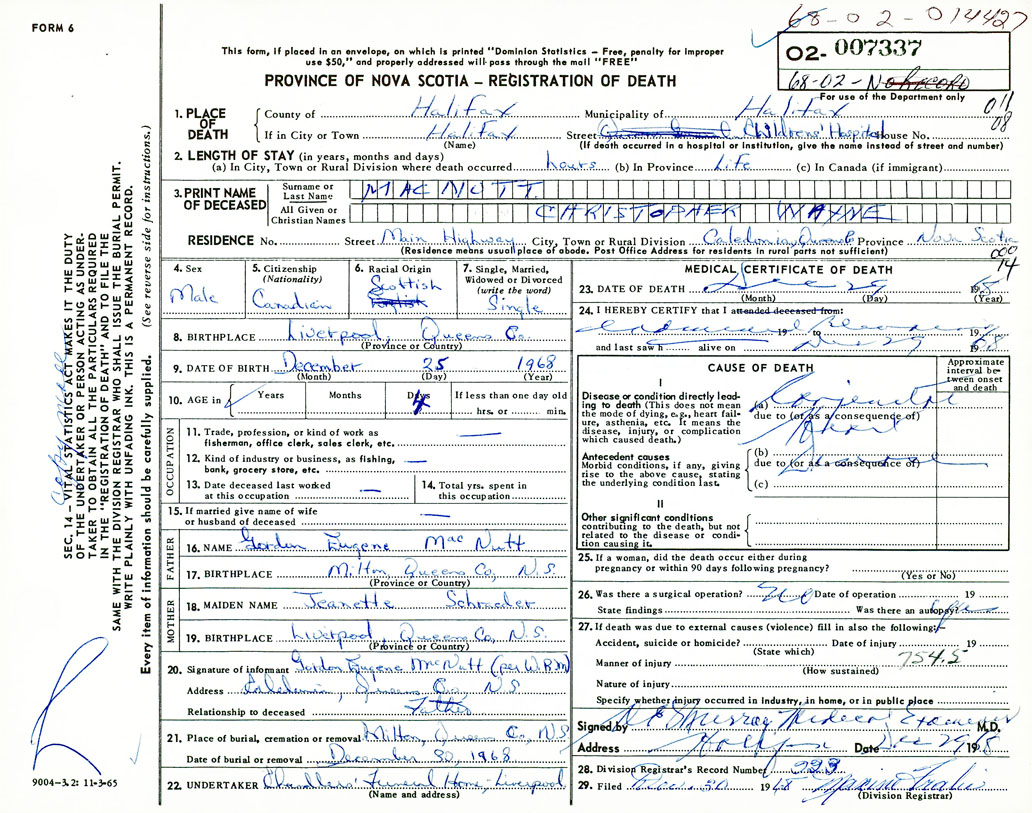 FORM 6
68-02-014427
This form, if placed in an envelope, on which is printed "Dominion Statistics – Free, penalty for improper
use $50," and properly addressed will pass through the mail "FREE"
02- 007337
PROVINCE OF NOVA SCOTIA – REGISTRATION OF DEATH
68-02- No RECORD
For use of the Department only
011
08
1. PLACE OF DEATH
County of Halifax Municipality of Halifax
If in City or Town Halifax Street Childrens' Hospital House No.
(Name) (If death occurred in a hospital or Institution, give the name instead of street and number)
2. LENGTH OF STAY (in years, months and days)
(a) In City, Town or Rural Division where death occurred hours (b) In Province Life (c) In Canada (if immigrant)
3. PRINT NAME OF DECEASED
Surname or Last Name MACNUTT
All Given or Christian Names CHRISTOPHER WAYNE
RESIDENCE No. Street Main Highway City, Town or Rural Division Caledonia, Queens Province Nova Scotia
(Residence means usual place of abode. Post Office Address for residents in rural parts not sufficient)
000
14
4. Sex Male
5. Citizenship (Nationality) Canadian
6. Racial Origin Scottish English
7. Single, Married, Widowed or Divorced (write the word) Single
8. BIRTHPLACE Liverpool, Queens Co.
(Province or Country)
9. DATE OF BIRTH December 25 1968
(Month) (Day) (Year)
10. AGE in Years Months Days 4 If less than one day old
hrs. or min.
OCCUPATION
11. Trade, profession, or kind of work as
fisherman, office clerk, sales clerk, etc. —
12. Kind of industry or business, as fishing,
bank, grocery store, etc. —
13. Date deceased last worked
at this occupation —
14. Total yrs. spent in
this occupation
15. If married give name of wife
or husband of deceased —
FATHER
16. NAME Gordon Eugene MacNutt
17. BIRTHPLACE Milton, Queens Co, N.S.
(Province or Country)
MOTHER
18. MAIDEN NAME Jeanette Schrader
19. BIRTHPLACE Liverpool, Queens Co, N.S.
(Province or Country)
20. Signature of informant Gordon Eugene MacNutt (per W.B.M)
Address Caledonia, Queens Co, N.S
Relationship to deceased Father
21. Place of burial, cremation or removal Milton, Queens Co, N.S
Date of burial or removal December 30, 1968
22. UNDERTAKER Chandlers' Funeral Home, Liverpool
(Name and address)
MEDICAL CERTIFICATE OF DEATH
23. DATE OF DEATH Dec 29 1968
(Month) (Day) (Year)
24. I HEREBY CERTIFY that I attended deceased from:
19 to 19
and last saw h alive on Dec 29 1968
CAUSE OF DEATH
Approximate interval between onset and death
I
Disease or condition directly leading to death (This does not mean the mode of dying, e.g., heart failure, asthenia, etc. It means the disease, injury, or complication which caused death.)
(a) Congenital
due to (or as a consequence of)
Heart
Antecedent causes
Morbid conditions, if any, giving rise to the above cause, stating the underlying condition last.
(b)
due to (or as a consequence of)
Disease
(c)
II
Other significant conditions
contributing to the death, but not related to the disease or condition causing it.
25. If a woman, did the death occur either during
pregnancy or within 90 days following pregnancy?
(Yes or No)
26. Was there a surgical operation? No Date of operation 19
State findings Was there an autopsy?
27. If death was due to external causes (violence) fill in also the following:
Accident, suicide or homicide? Date of injury 19
(State which)
Manner of injury 754.5
(How sustained)
Nature of injury
Specify whether injury occurred in Industry, in home, or in public place
Signed by Murray Medical Examiner M.D.
Address Halifax Date Dec 29 1968
28. Division Registrar's Record Number 993
29. Filed Dec. 30 1968
(Division Registrar)
SEC. 14 – VITAL STATISTICS ACT MAKES IT THE DUTY
OF THE UNDERTAKER OR PERSON ACTING AS UNDER-
TAKER TO OBTAIN ALL THE PARTICULARS REQUIRED
IN THE "REGISTRATION OF DEATH" AND TO FILE THE
SAME WITH THE DIVISION REGISTRAR WHO SHALL ISSUE THE BURIAL PERMIT.
WRITE PLAINLY WITH UNFADING INK. THIS IS A PERMANENT RECORD.
Every item of information should be carefully supplied. (See reverse side for instructions.)
9004-3.2: 11-3-65